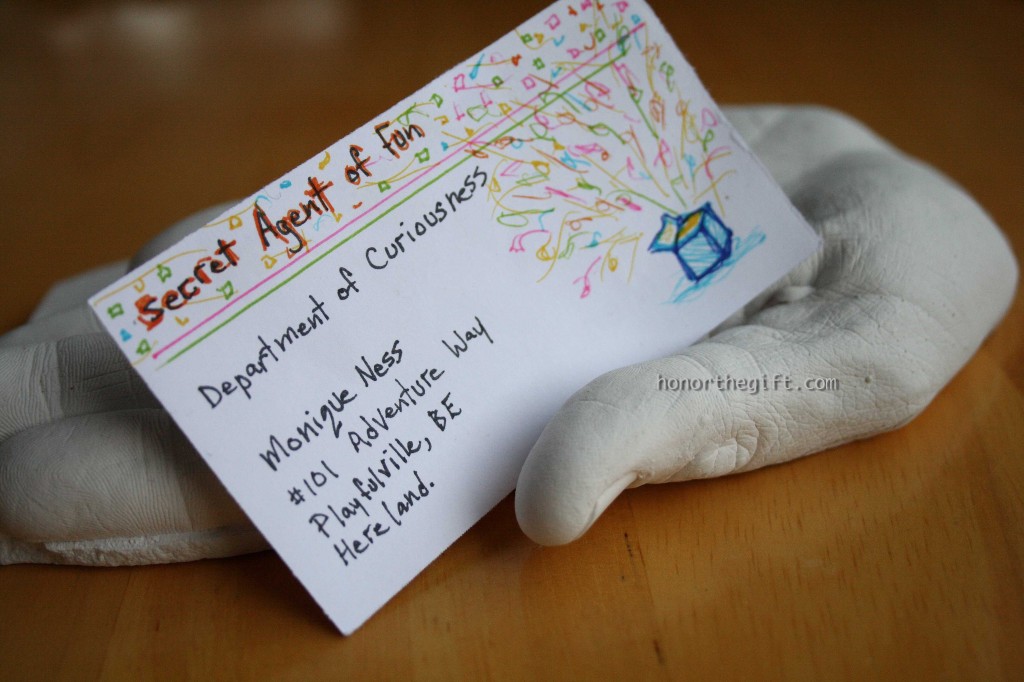 Secret Agent of Fun
Department of Curiousness
Monique Ness
#101 Adventure Way
Playfulville, BE
Hereland.
honorthegift.com